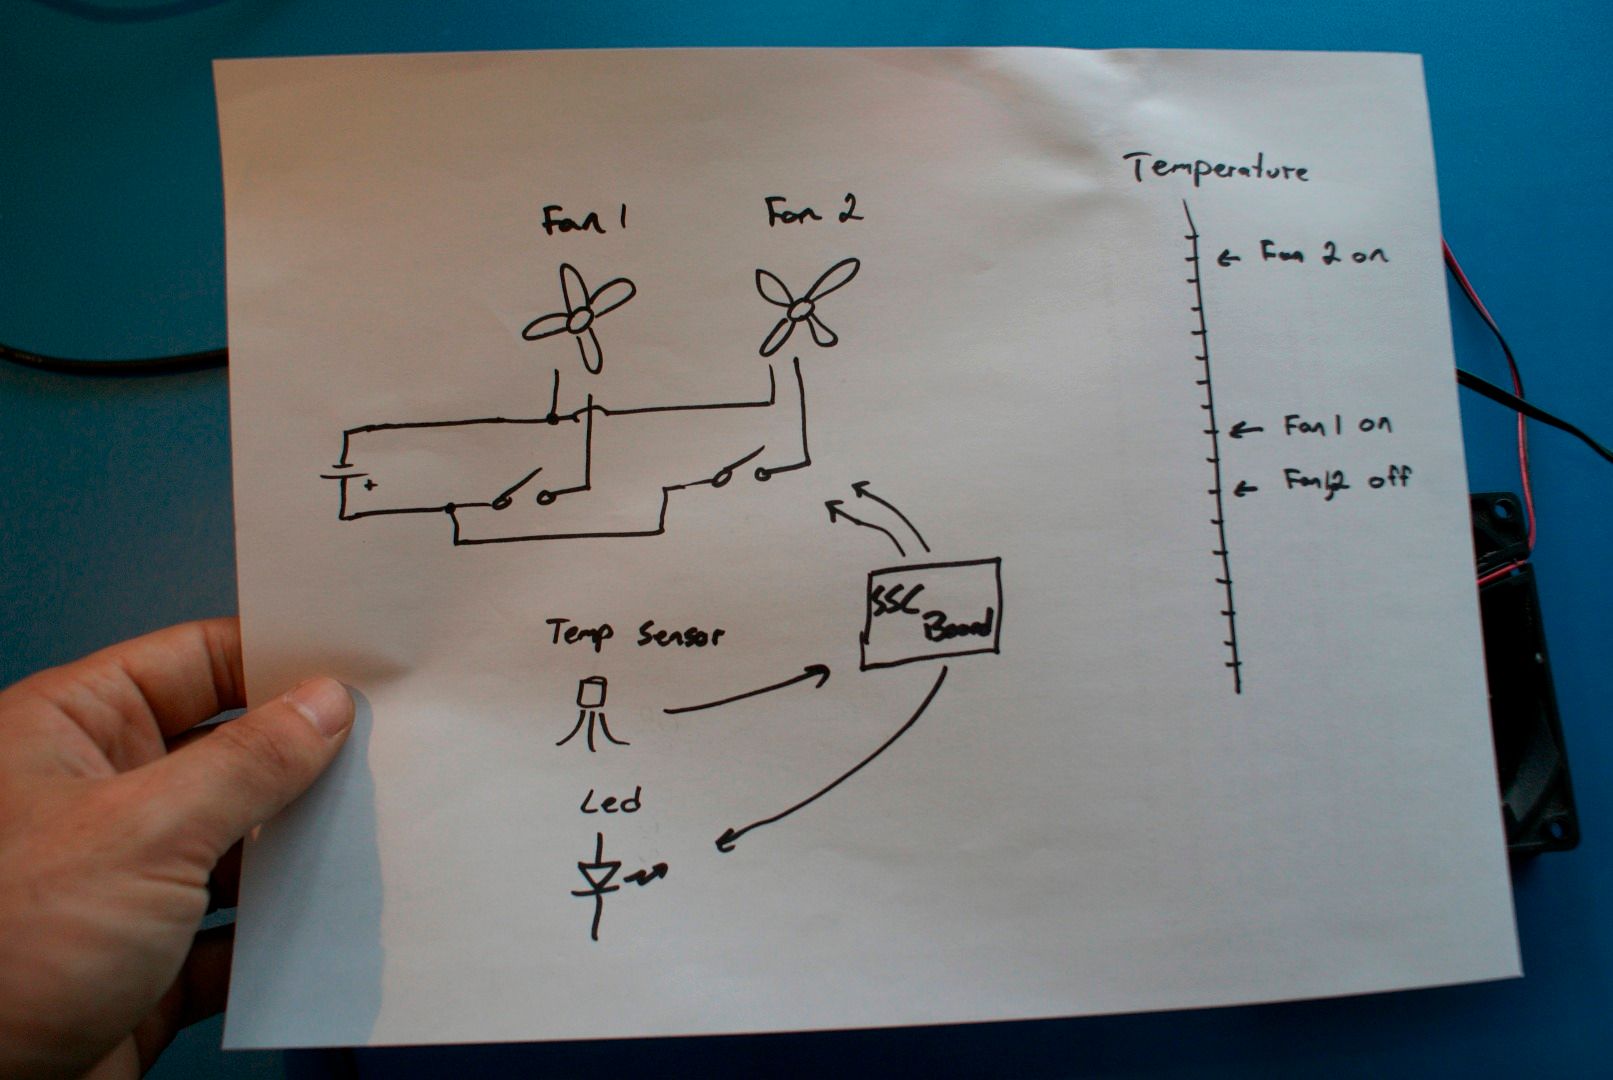 Temperature
Fan 1
Fan 2
← Fan 2 on
← Fan 1 on
← Fan 1,2 off
+
SSC
Board
Temp Sensor
Led